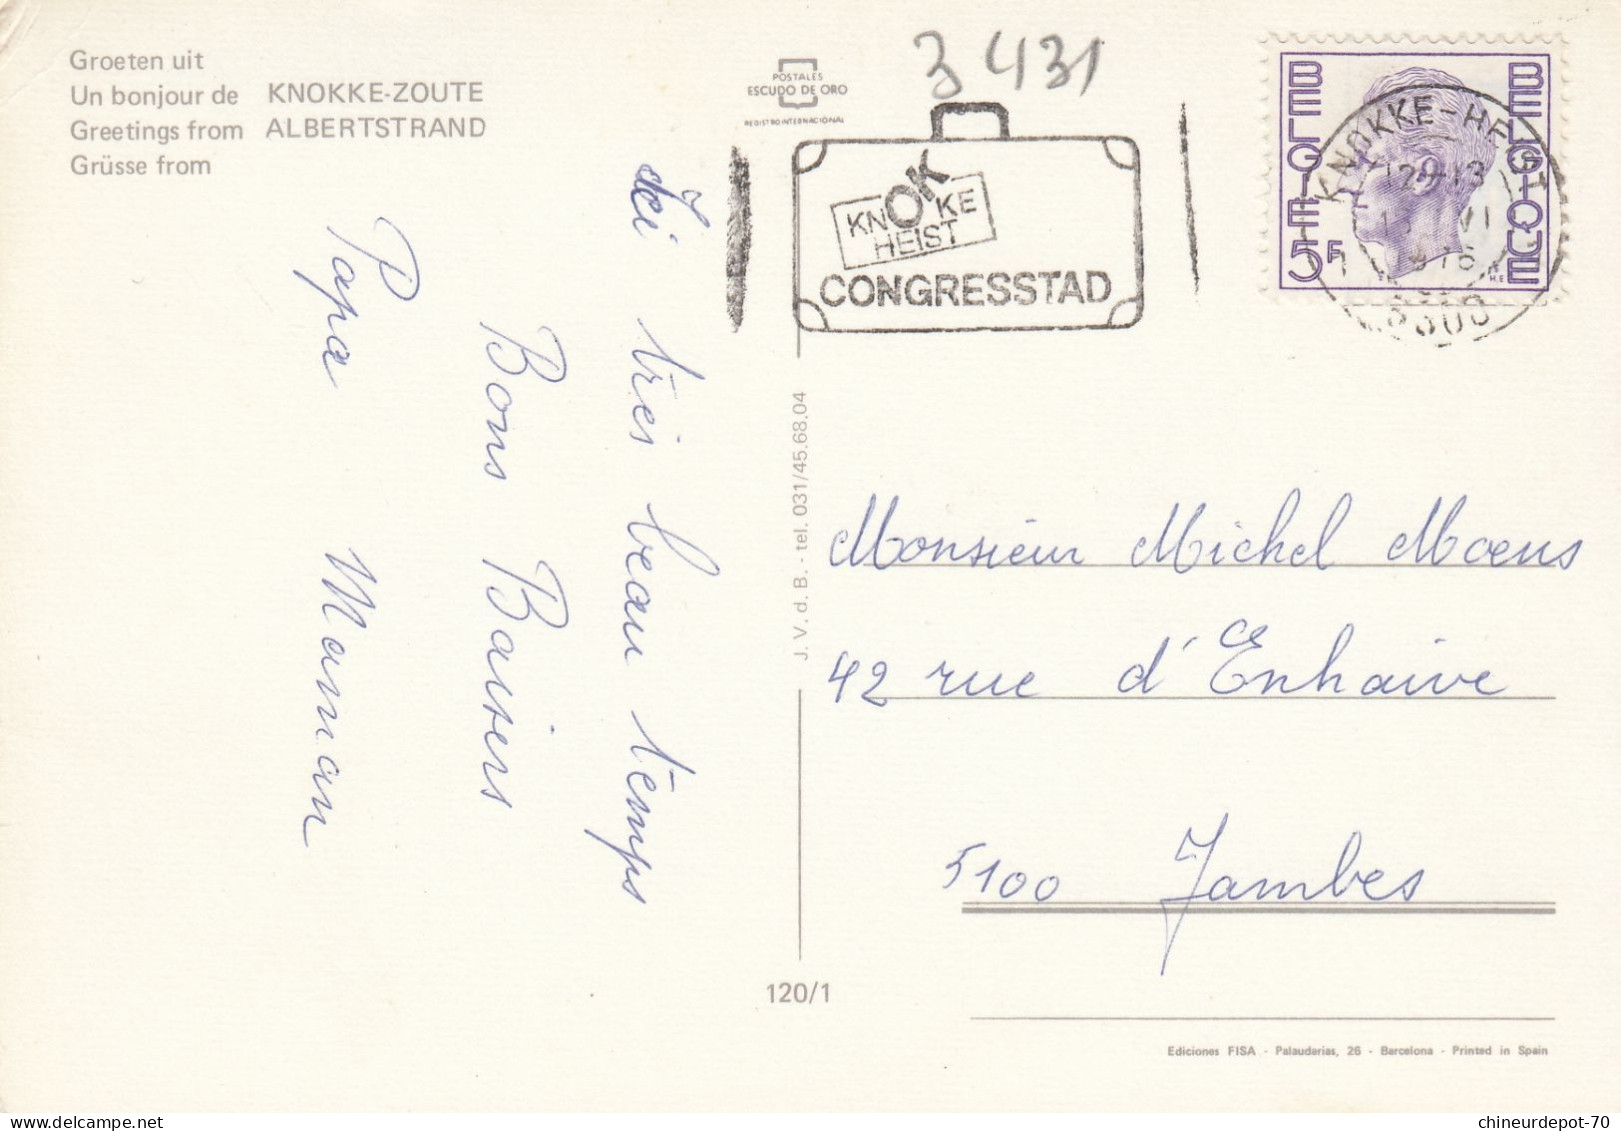 Groeten uit
Un bonjour de KNOKKE-ZOUTE
Greetings from ALBERTSTRAND
Grüsse from
POSTALES
ESCUDO DE ORO
REGISTRO INTERNACIONAL
3 431
KNOKKE
HEIST
CONGRESSTAD
BELGIE
BELGIQUE
5F
KNOKKE-HEIST
12-13
VI
1
Ici très beau temps
Bons Baisers
Papa Maman
J. V. d. B. - tel. 031/45.68.04
Monsieur Michel Moens
42 rue d'Enhaive
5100 Jambes
120/1
Ediciones FISA - Palaudarias, 26 - Barcelona - Printed in Spain
chineurdepot-70